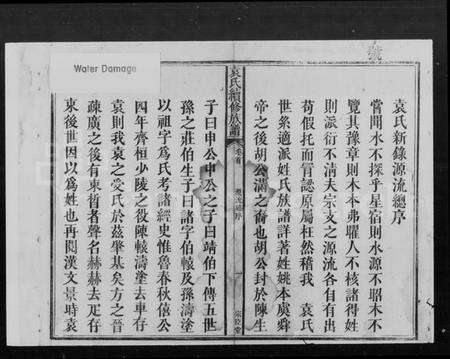 Water Damage
號
袁氏新錄源流總序
嘗聞水不探乎星宿則水源不昭木不
覽其豫章則木本弗曜人不核諸得姓
則派衍不清夫宗支之源流各自有出
苟假托而冒認原屬枉然稽我 袁氏
世系適派姓氏族譜詳著姓姚本虞舜
帝之後胡公滿之裔也胡公封於陳生
袁氏續修族譜
卷首
源流總序
子曰申公申公之子曰靖伯下傳五世
孫之莊伯生子曰諸字伯轅及孫濤塗
以祖字為氏考諸經史惟魯春秋僖公
四年齊桓少陵之役陳轅濤塗去車存
袁則我袁之受氏於茲肇基矣方之晉
疎廣之後有束晳者聲名赫赫去疋存
束後世因以為姓也再閱漢文景時袁